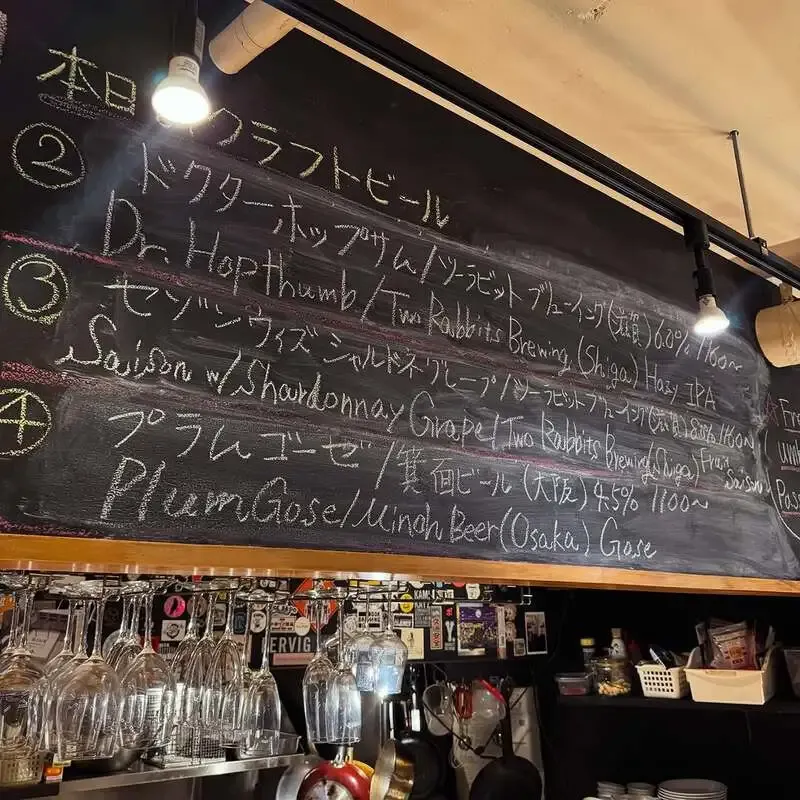 本日 クラフトビール
② ドクターホップサム/ツーラビットブルーイング(滋賀) 6.0% 1160~
Dr. Hopthumb/Two Rabbits Brewing (Shiga) Hazy IPA
③ セゾンウィズシャルドネグレープ/ツーラビットブルーイング(滋賀) 1160~
Saison w/Shardonnay Grape/Two Rabbits Brewing (Shiga) Fruit Saison
④ プラムゴーゼ/箕面ビール (大阪) 4.5% 1100~
Plum Gose/Minoh Beer (Osaka) Gose
ERVIG